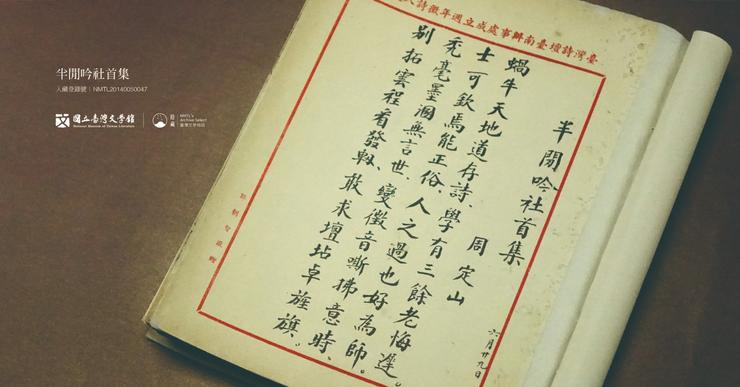 半閒吟社首集
入藏登錄號｜NMTL20140050047
國立臺灣文學館
National Museum of Taiwan Literature
NMTL's
Archive Select
臺灣詩壇臺南辦事處成立週年徵詩
半閒吟社首集
周定山
六月廿九日
蝸牛天地道存詩、學有三餘老悔遲。
士可欽焉能正俗、人之過也好為師。
禿毫墨涸無言世、變徵音嘶拂意時、
別拓雲程看發軔、敢求壇坫卓旌旗。